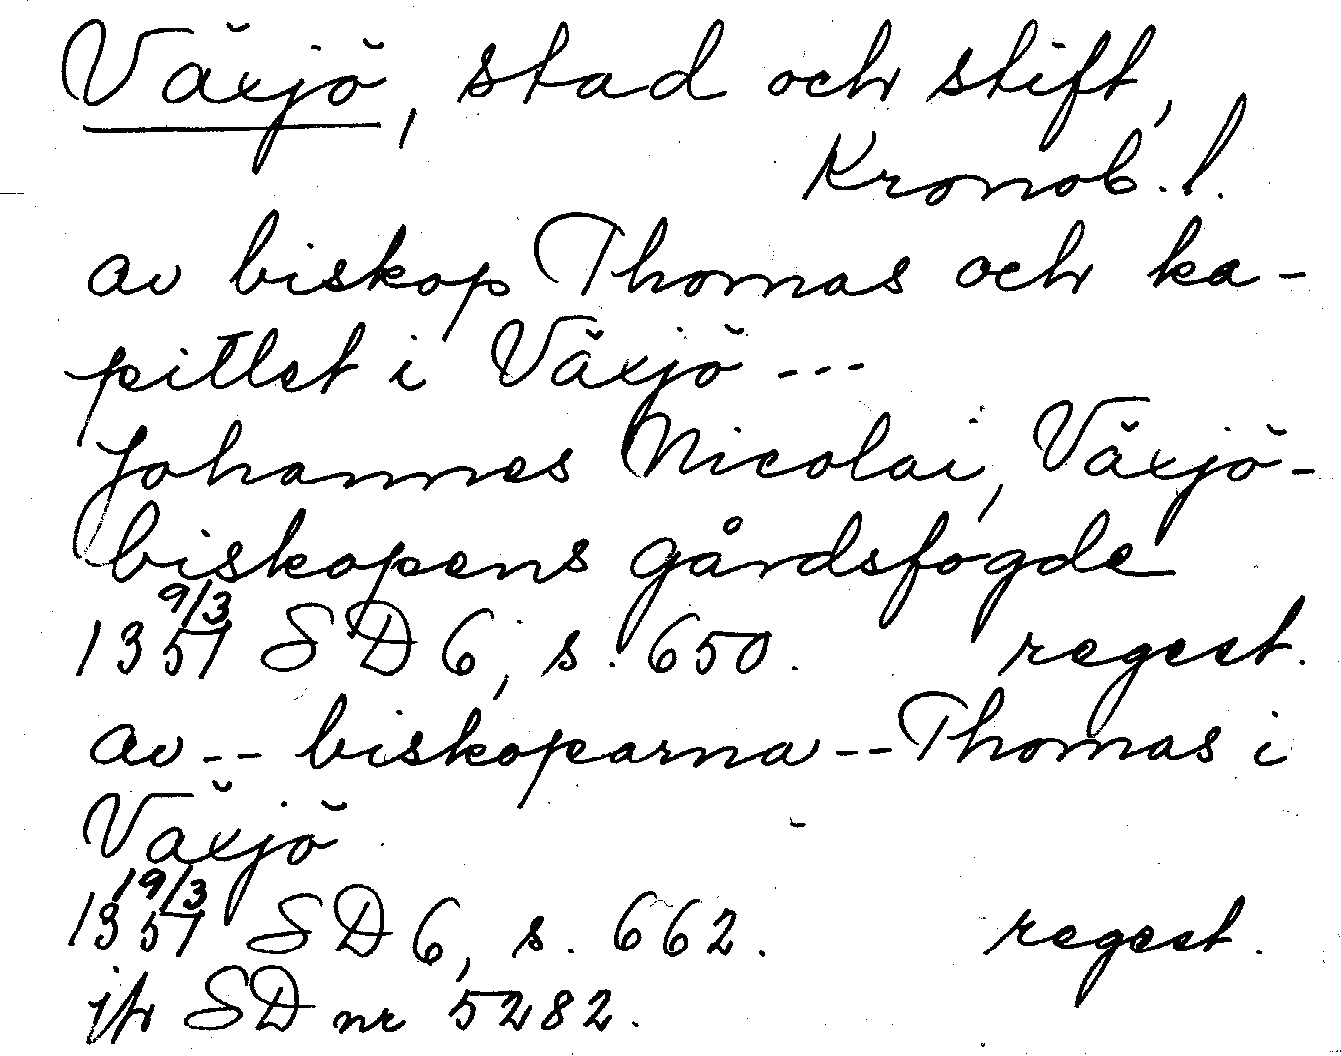 Växjö, stad och stift,
Kronob. l.
av biskop Thomas och ka-
pitlet i Växjö ---
Johannes Nicolai, Växjö-
biskopens gårdsfogde
9/3
1357 SD 6, s. 650. regest.
av -- biskoparna -- Thomas i
Växjö
19/3
1357 SD 6, s. 662. regest.
jfr SD nr 5282.